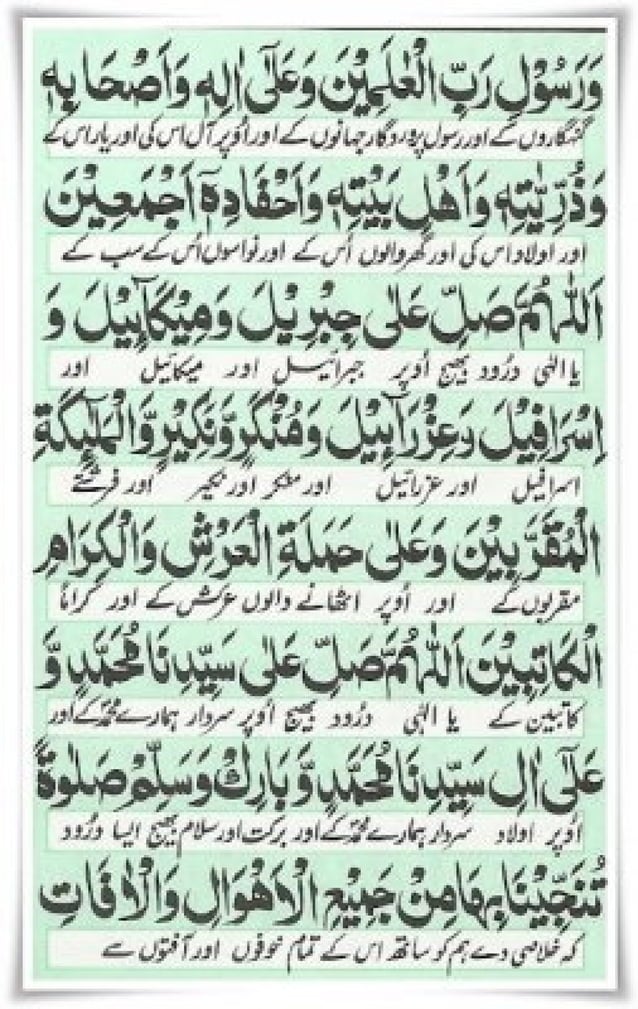 وَرَسُوْلِ رَبِّ الْعٰلَمِیْنَ وَعَلٰۤی اٰلِهٖ وَاَصْحَابِهٖ
گنہگاروں کے اور رسول پروردگار جہانوں کے اور اُوپر آل اس کی اور یار اس کے
وَذُرِّیّٰتِهٖ وَاَهْلِ بَیْتِهٖ وَاَحْفَادِهٖۤ اَجْمَعِیْنَ
اور اولاد اس کی اور گھر والوں اُس کے اور نواسوں اُس کے سب کے
اَللّٰهُمَّ صَلِّ عَلٰی جِبْرِیْلَ وَمِیْكَآئِیْلَ وَ
یا الٰہی درُود بھیج اُوپر جبرائیل اور میکائیل اور
اِسْرَافِیْلَ وَعِزْرَآئِیْلَ وَمُنْكَرٍ وَّنَكِیْرٍ وَّالْمَلٰٓئِكَةِ
اسرافیل اور عزرائیل اور منکر اور نکیر اور فرشتے
الْمُقَرَّبِیْنَ وَعَلٰی حَمَلَةِ الْعَرْشِ وَالْكِرَامِ
مقربوں کے اور اُوپر اٹھانے والوں عرش کے اور کراماً
الْكَاتِبِیْنَ اَللّٰهُمَّ صَلِّ عَلٰی سَیِّدِنَا مُحَمَّدٍ وَّ
کاتبین کے یا الٰہی درُود بھیج اُوپر سردار ہمارے محمدؐ کے اور
عَلٰۤی اٰلِ سَیِّدِنَا مُحَمَّدٍ وَّبَارِكْ وَسَلِّمْ صَلٰوةً
اُوپر اولاد سردار ہمارے محمدؐ کے اور برکت اور سلام بھیج ایسا درُود
تُنَجِّیْنَا بِهَا مِنْ جَمِیْعِ الْاَهْوَالِ وَالْاٰفَاتِ
کہ خلاصی دے ہم کو ساتھ اس کے تمام خوفوں اور آفتوں سے